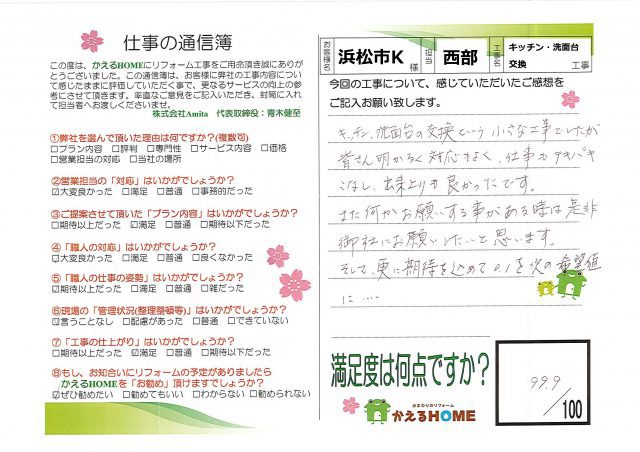 仕事の通信簿
この度は、かえるHOMEにリフォーム工事をご用命頂き誠にありが
とうございました。この通信簿は、お客様に弊社の工事内容につい
て感じたままに評価していただく事で、更なるサービスの向上の参
考にさせて頂きます。率直なご意見をご記入いただき、封筒に入れ
て担当者へお渡しくださいませ。
株式会社Amita 代表取締役：青木健至
①弊社を選んで頂いた理由は何ですか?(複数可)
□プラン内容 □評判 □専門性 □サービス内容 □価格
□営業担当の対応 □当社の場所
②営業担当の「対応」はいかがでしょうか?
☑大変良かった □満足 □普通 □事務的だった
③ご提案させて頂いた「プラン内容」はいかがでしょうか?
□期待以上だった ☑満足 □普通 □期待以下だった
④「職人の対応」はいかがでしょうか?
☑大変良かった □満足 □普通 □良くなかった
⑤「職人の仕事の姿勢」はいかがでしょうか?
☑期待以上だった □満足 □普通 □雑だった
⑥現場の「管理状況(整理整頓等)」はいかがでしょうか?
☑言うことなし □配慮があった □普通 □できていない
⑦「工事の仕上がり」はいかがでしょうか?
□期待以上だった ☑満足 □普通 □期待以下だった
⑧もし、お知合いにリフォームの予定がありましたら
かえるHOMEを「お勧め」頂けますでしょうか?
☑ぜひ勧めたい □勧めてもいい □わからない □勧められない
お客様名 浜松市K 様 担当 西部 工事名 キッチン・洗面台
交換 工事
今回の工事について、感じていただいたご感想を
ご記入お願い致します。
キッチン、洗面台の交換という小さな工事でしたが
皆さん明かるく対応もよく、仕事もテキパキ
こなし、出来上りも良かったです。
また何かお願いする事がある時は是非
御社にお願いしたいと思います。
そして、更に期待を込めて0.1を次の希望値
に‥‥
満足度は何点ですか?
99.9
/100
水まわりのリフォーム
かえるHOME